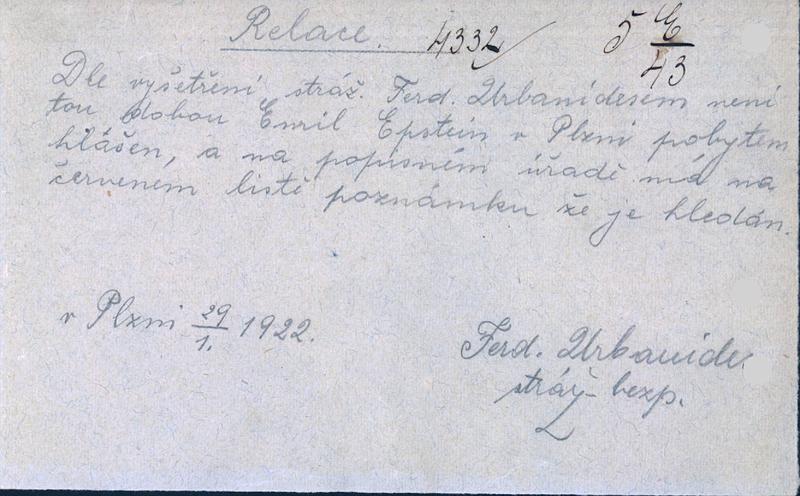 Relace. 4332/ 5 E/43
Dle vyšetření stráž. Ferd. Urbanidesem není
tou dobou Emil Epstein v Plzni pobytem
hlášen, a na popisném úřadě má na
červeném listě poznámku že je hledán.
v Plzni 29/1. 1922.
Ferd. Urbanides
stráž bezp.